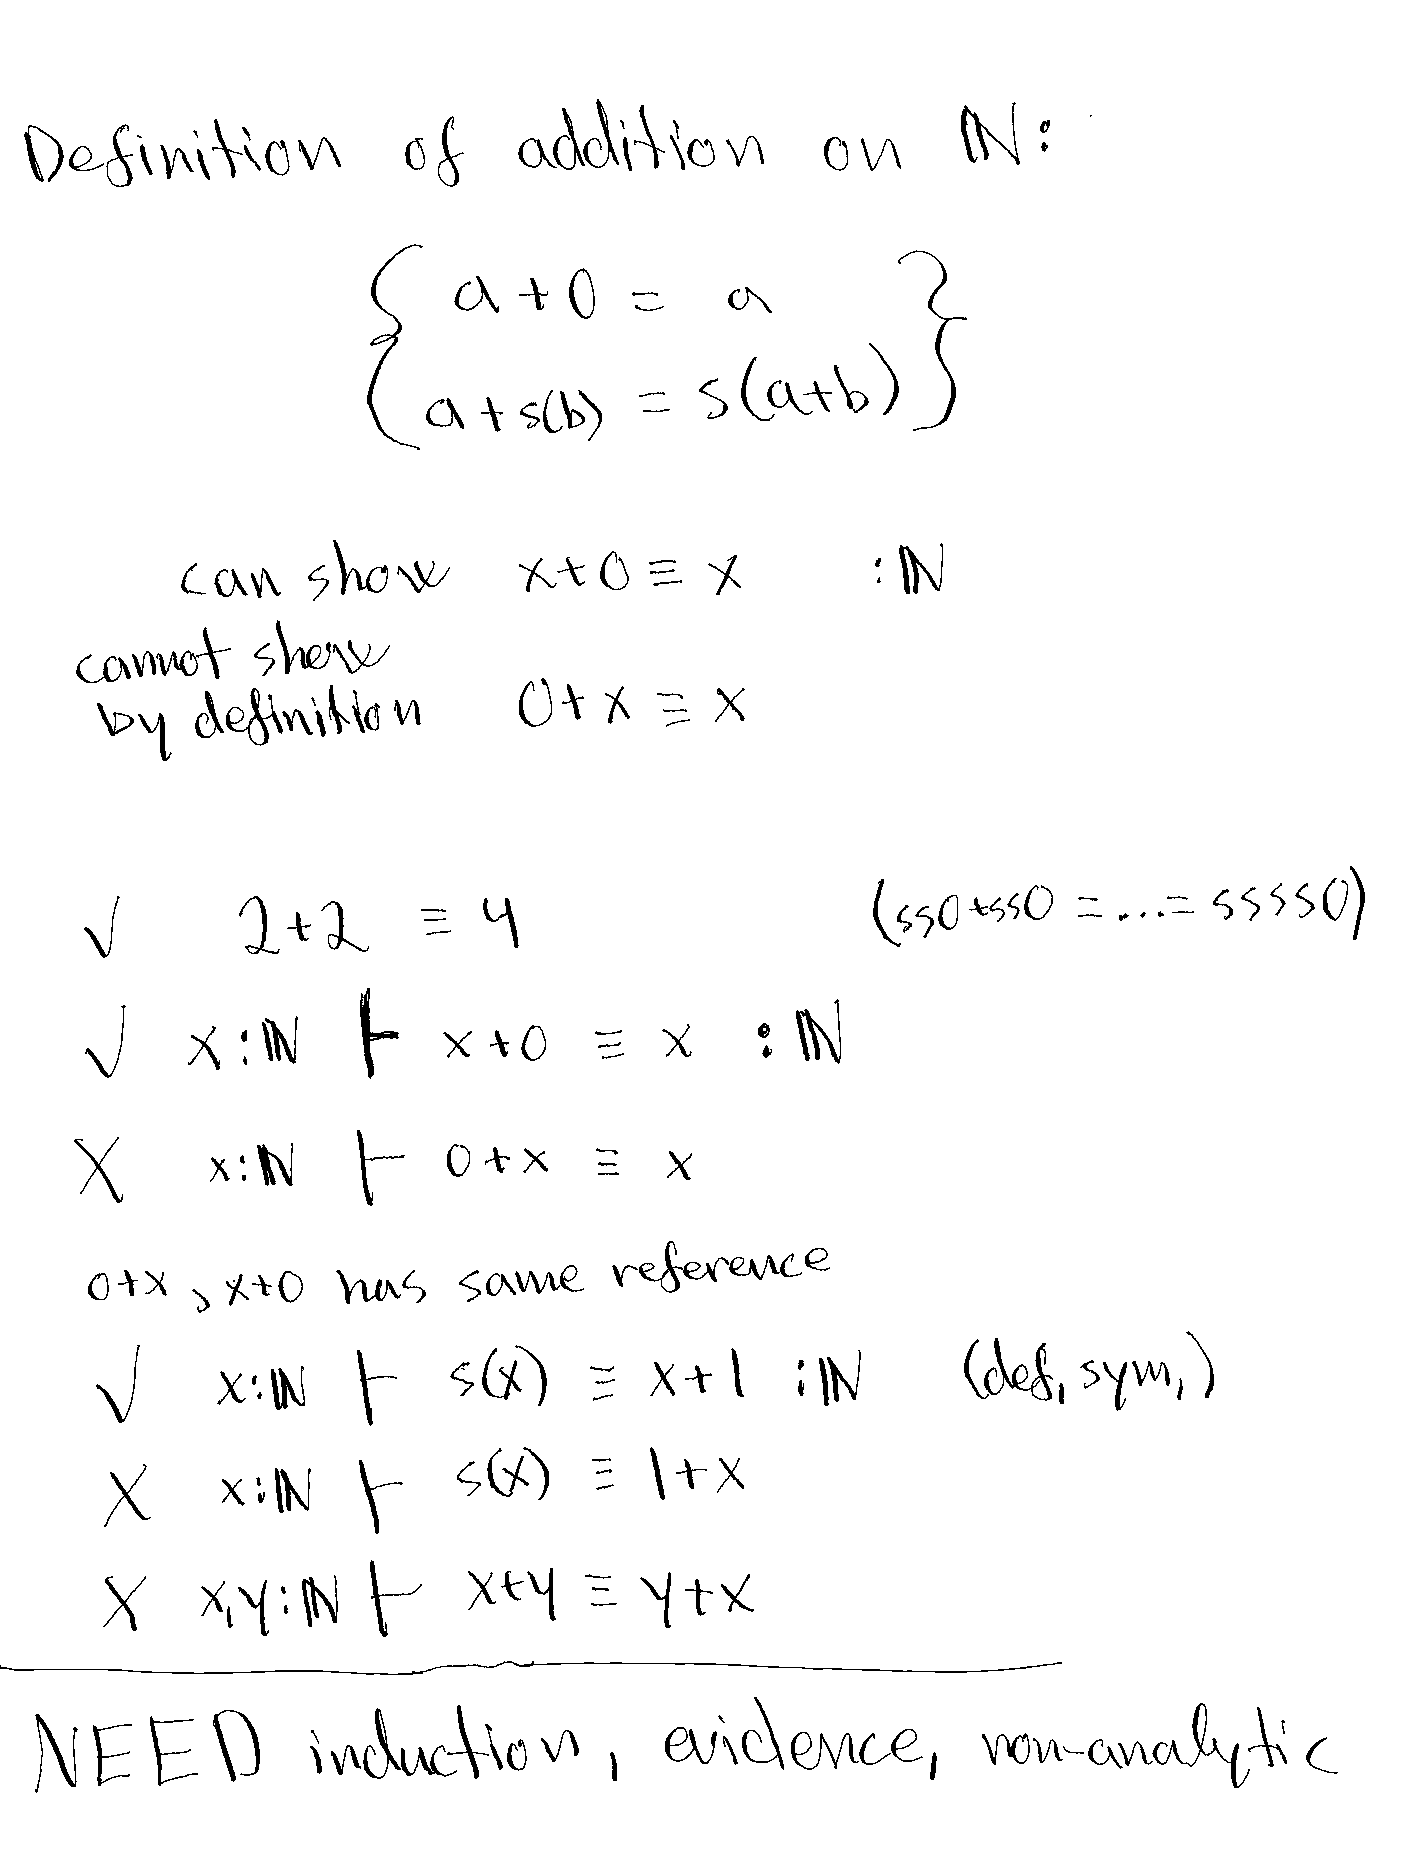 Definition of addition on ℕ:
{ a+0 = a }
{ a+s(b) = s(a+b) }
can show x+0 ≡ x :ℕ
cannot show
by definition 0+x ≡ x
✓ 2+2 ≡ 4 (ss0+ss0 =...= ssss0)
✓ x:ℕ ⊢ x+0 ≡ x :ℕ
X x:ℕ ⊢ 0+x ≡ x
0+x, x+0 has same reference
✓ x:ℕ ⊢ s(x) ≡ x+1 :ℕ (def, sym,)
X x:ℕ ⊢ s(x) ≡ 1+x
X x,y:ℕ ⊢ x+y ≡ y+x
NEED induction, evidence, non-analytic